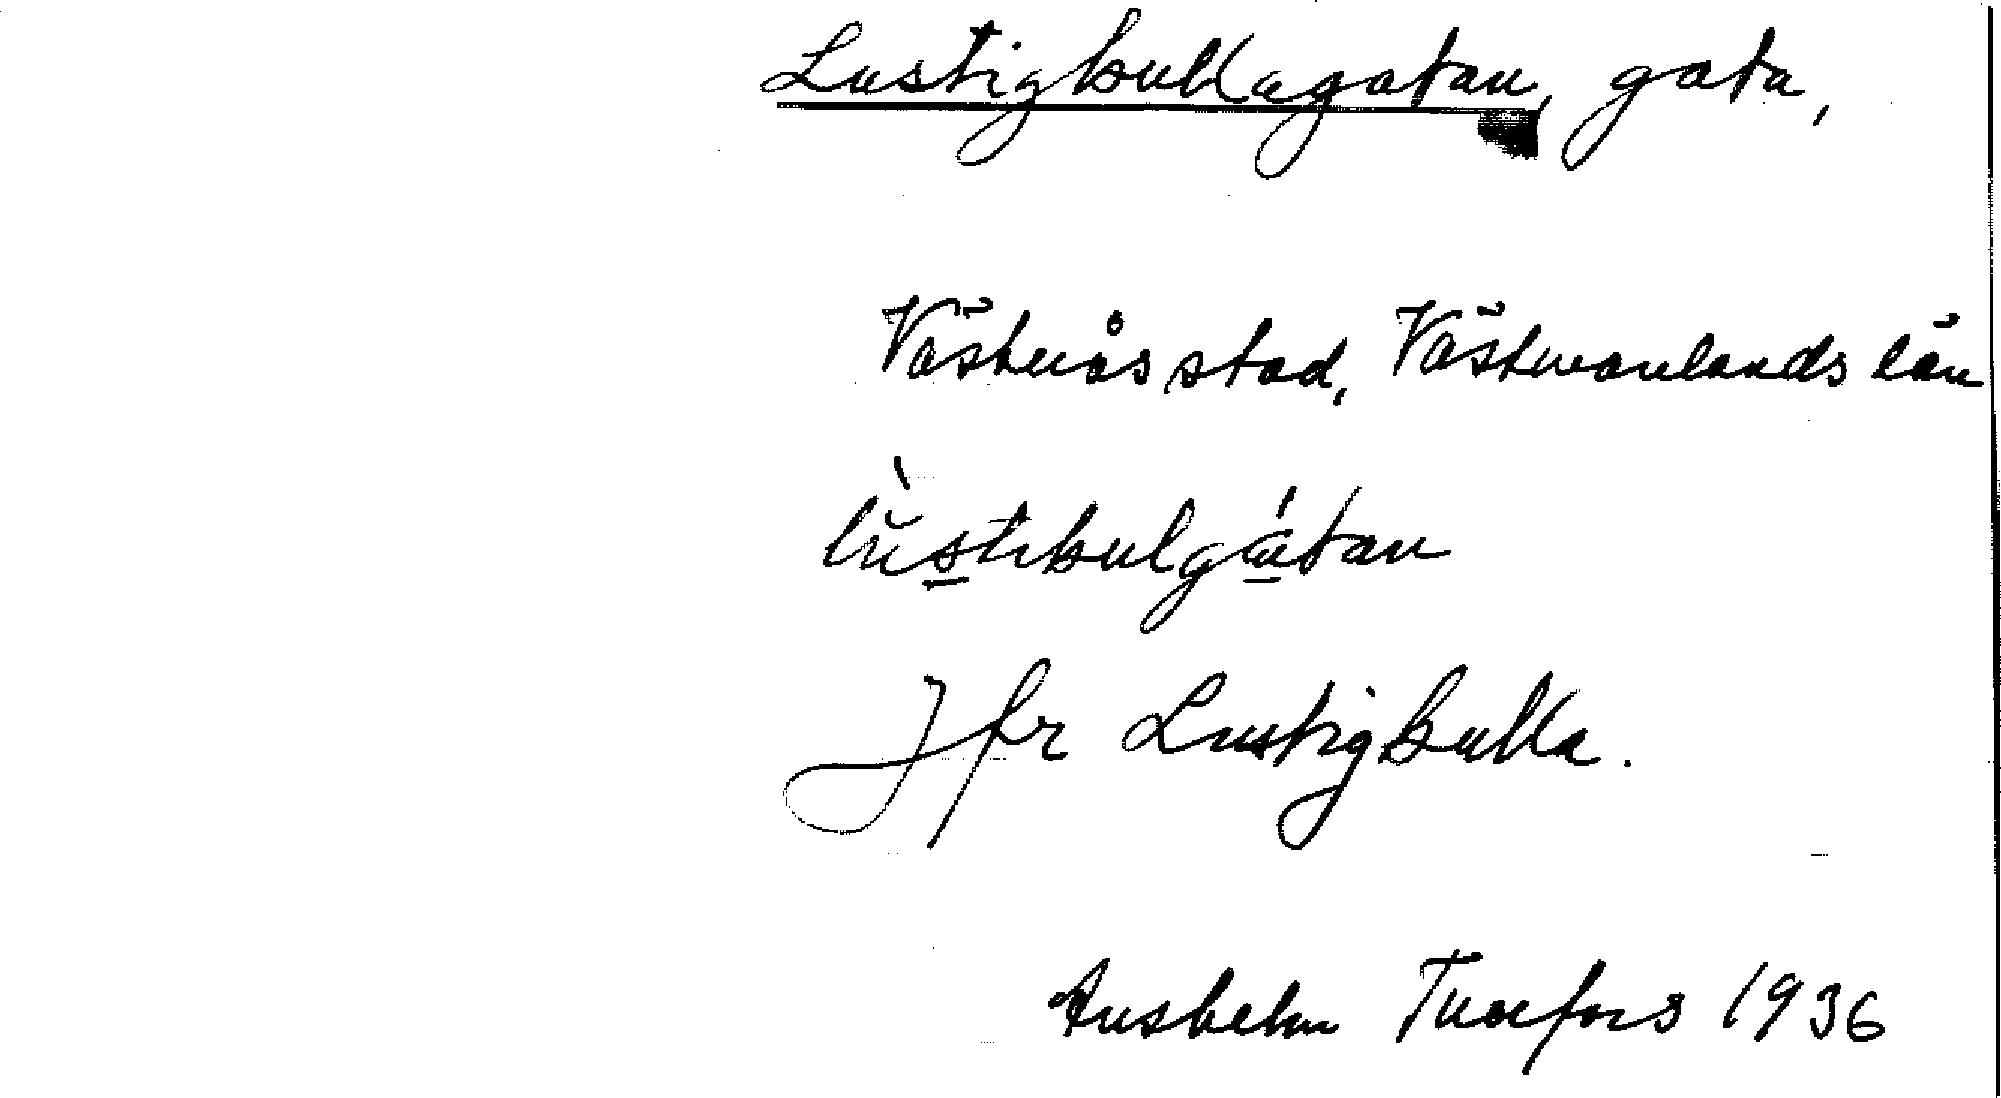 Lustigkullagatan, gata,
Västerås stad, Västmanlands län
lŭ̀stikulgátan
Jfr Lustigkulla.
Anshelm Tuxfors 1936